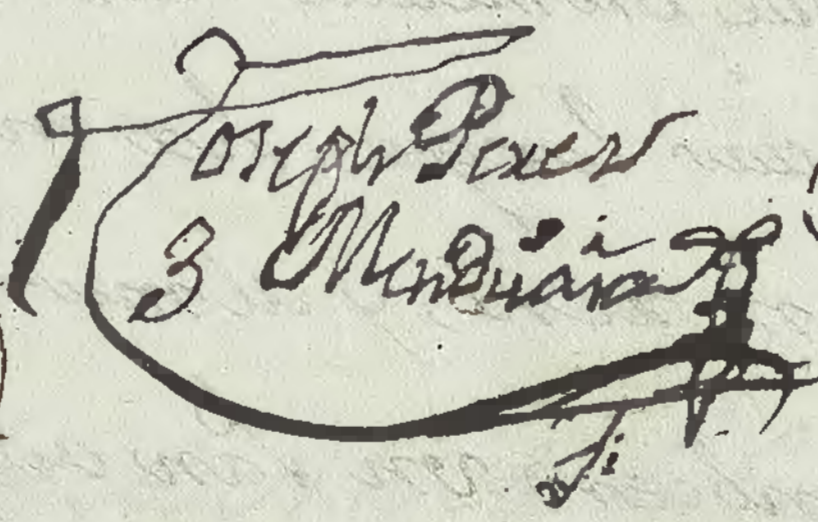 Joseph Perez
3 Mendiiara